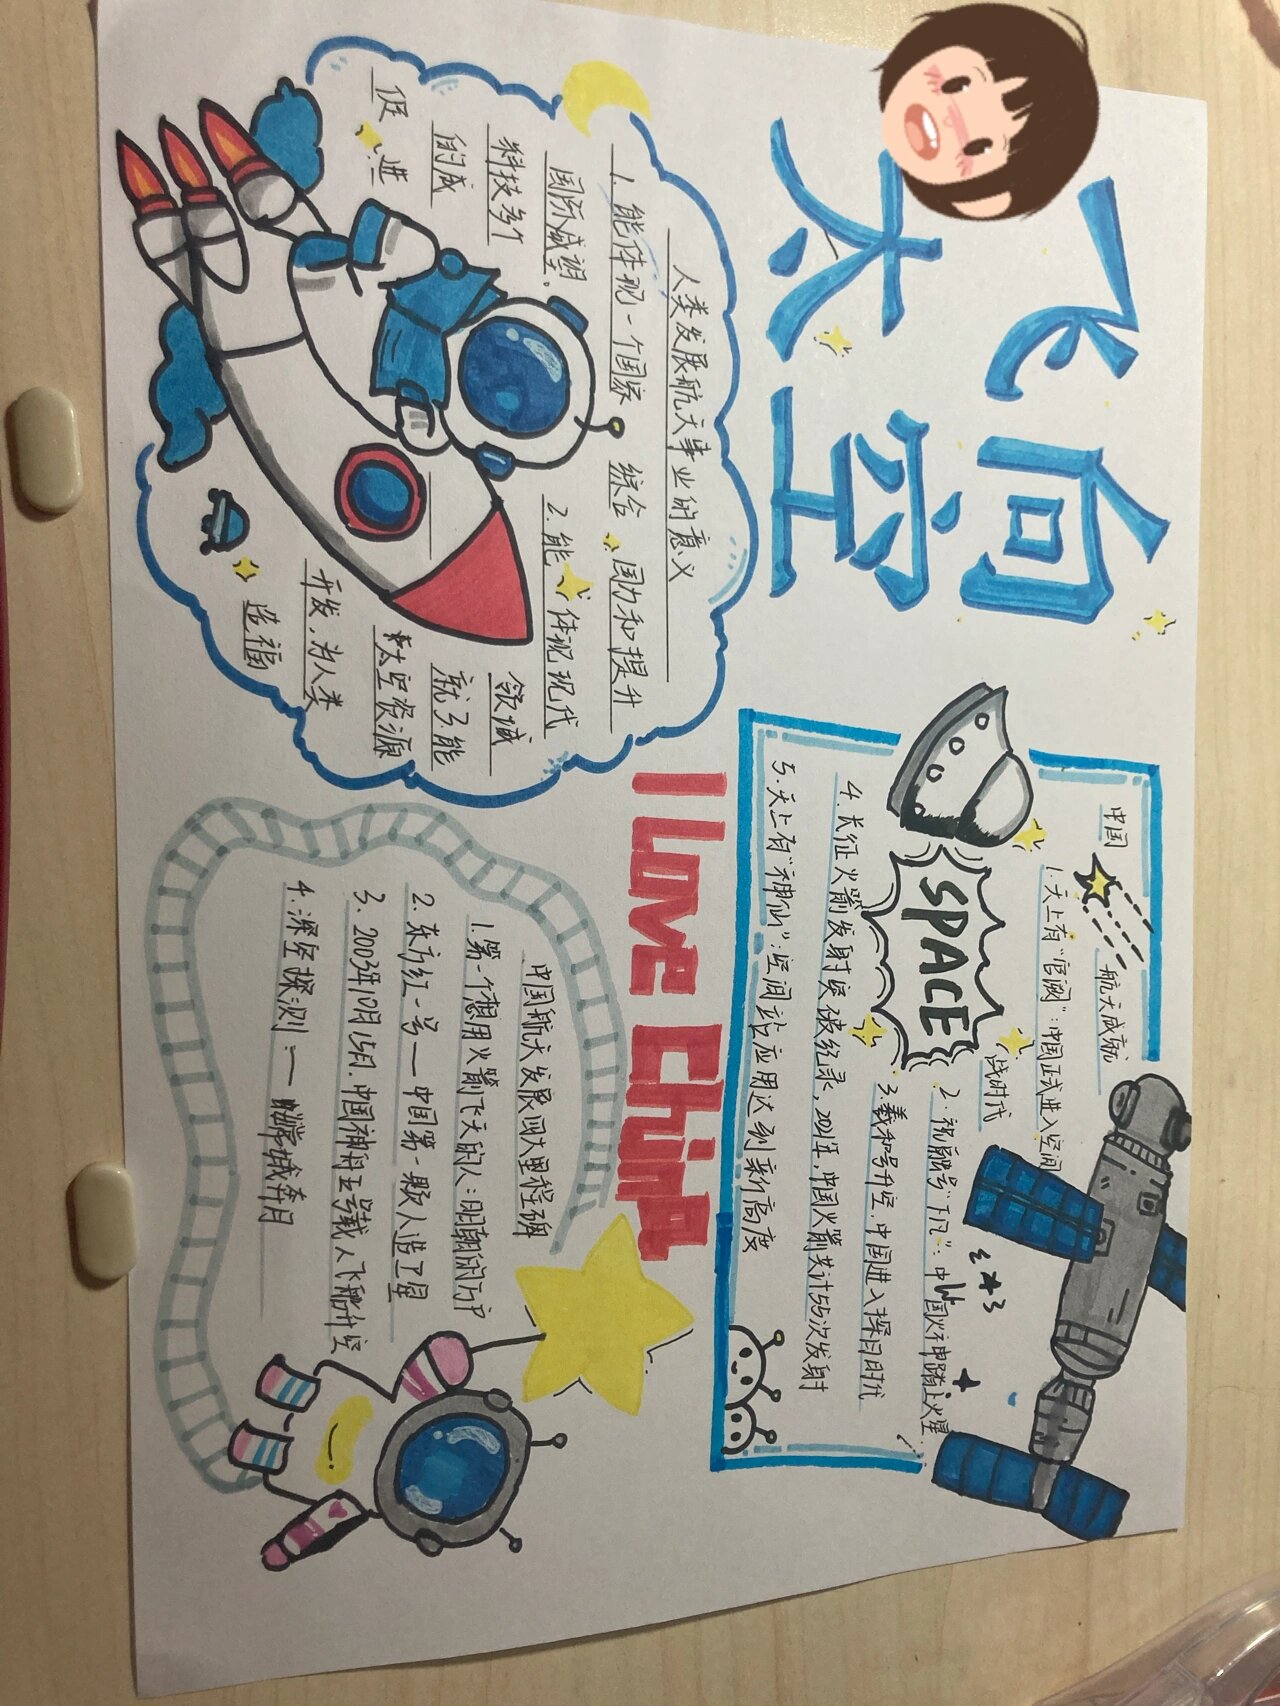 飞向
太空
人类发展航天事业的意义
1.能体现一个国家 综合 国力和提升
国际威望。 2.能 体现现代
科技多个 领域
的成 就3.能
促 进 太空资源
开发,为人类
造福
I Love China
中国 航天成就
1.天上有“宫阙”:中国正式进入空间
站时代
2.祝融号“下凡”:中国火神踏上火星.
3.羲和号升空.中国进入探日时代
4.长征火箭发射突破纪录,2021年,中国火箭共计55次发射
5.天上有“神仙”:空间站应用达到新高度
SPACE
中国航天发展四大里程碑
1.第一个想用火箭飞天的人:明朝的万户
2.东方红一号——中国第一颗人造卫星
3.2003年10月15日.中国神舟五号载人飞船升空
4.深空探测:——嫦娥奔月